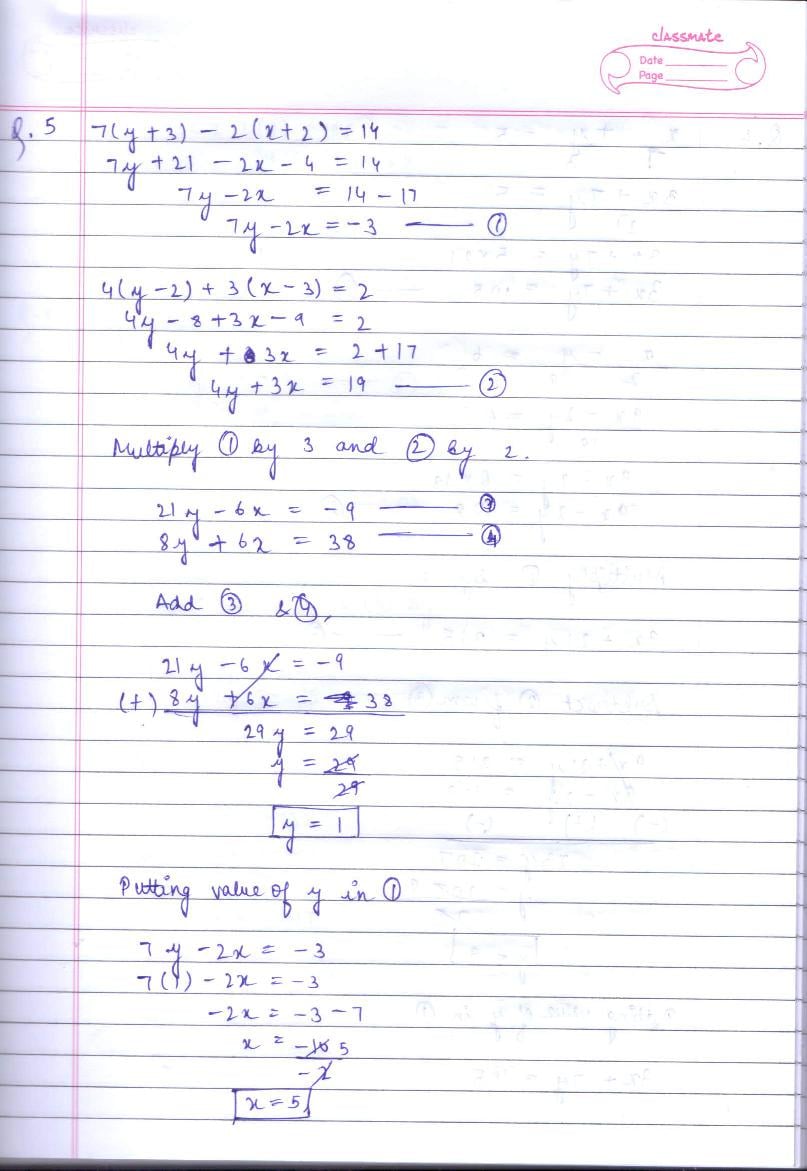 classmate
Date
Page
Q. 5 7(y + 3) - 2(x+2) = 14
7y + 21 - 2x - 4 = 14
7y - 2x = 14 - 17
7y - 2x = -3 ①
4(y - 2) + 3(x - 3) = 2
4y - 8 + 3x - 9 = 2
4y + 3x = 2 + 17
4y + 3x = 19 ②
Multiply ① by 3 and ② by 2.
21y - 6x = -9 ③
8y + 6x = 38 ④
Add ③ & ④,
21y - 6x = -9
(+) 8y + 6x = 38
29y = 29
y = 29
29
y = 1
Putting value of y in ①
7y - 2x = -3
7(1) - 2x = -3
-2x = -3 - 7
x = -10 5
-2
x = 5